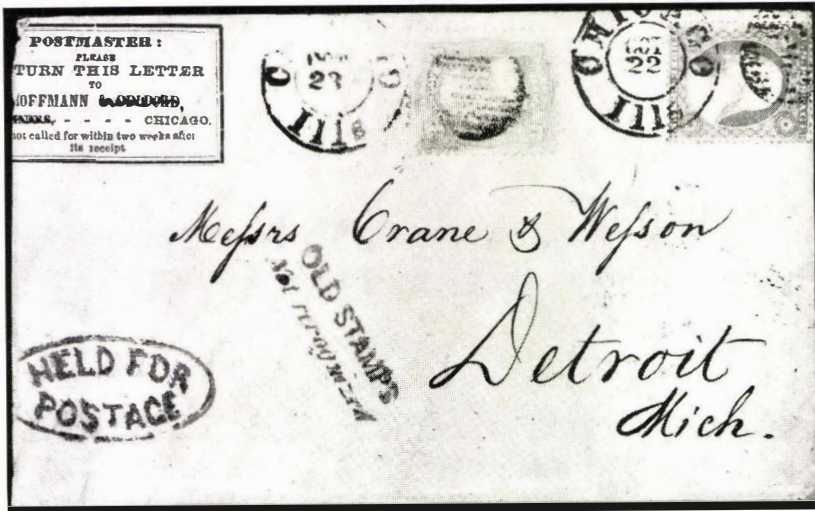 POSTMASTER:
PLEASE
TURN THIS LETTER
TO
HOFFMANN
CHICAGO.
not called for within two weeks after
its receipt
23
Ills
CHICAGO
OCT
22
Ills
Meſsrs Crane & Weſson
OLD STAMPS
Not recognized
HELD FOR
POSTAGE
Detroit
Mich.